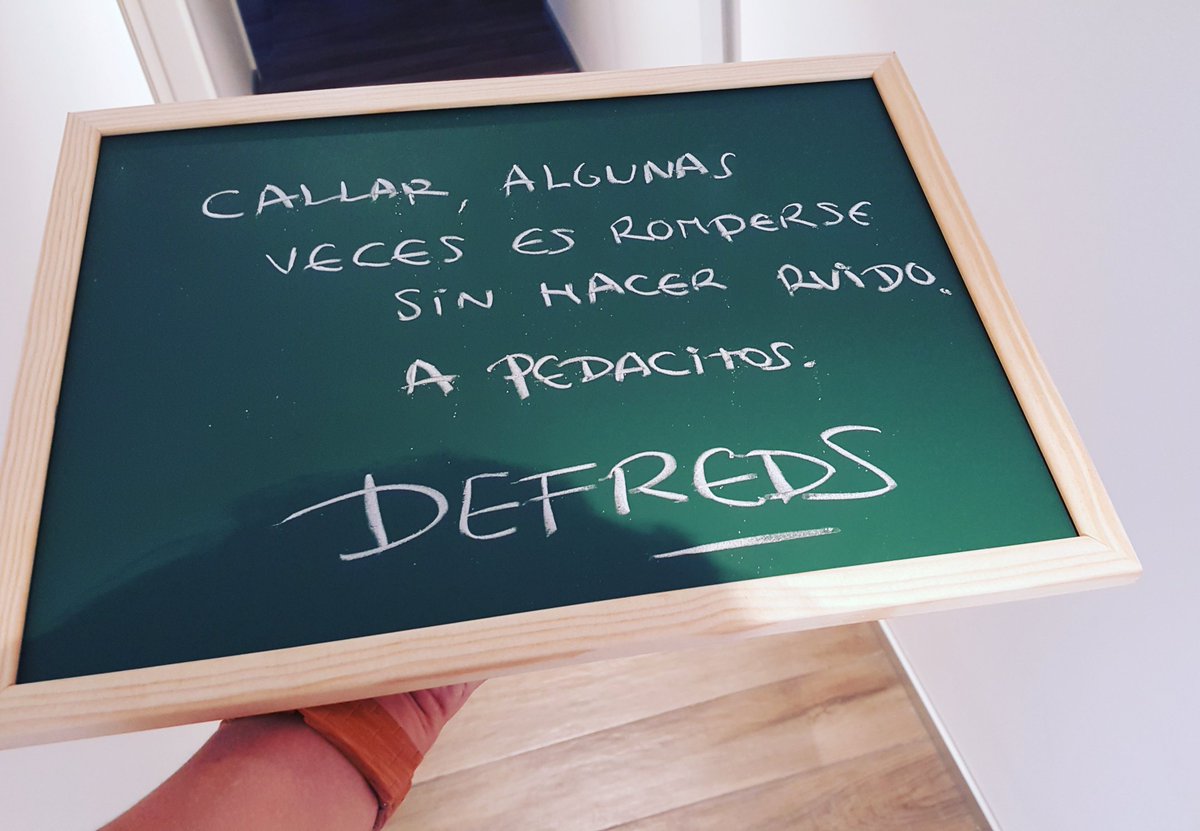 CALLAR, ALGUNAS
VECES ES ROMPERSE
SIN HACER RUIDO.
A PEDACITOS.
DEFREDS